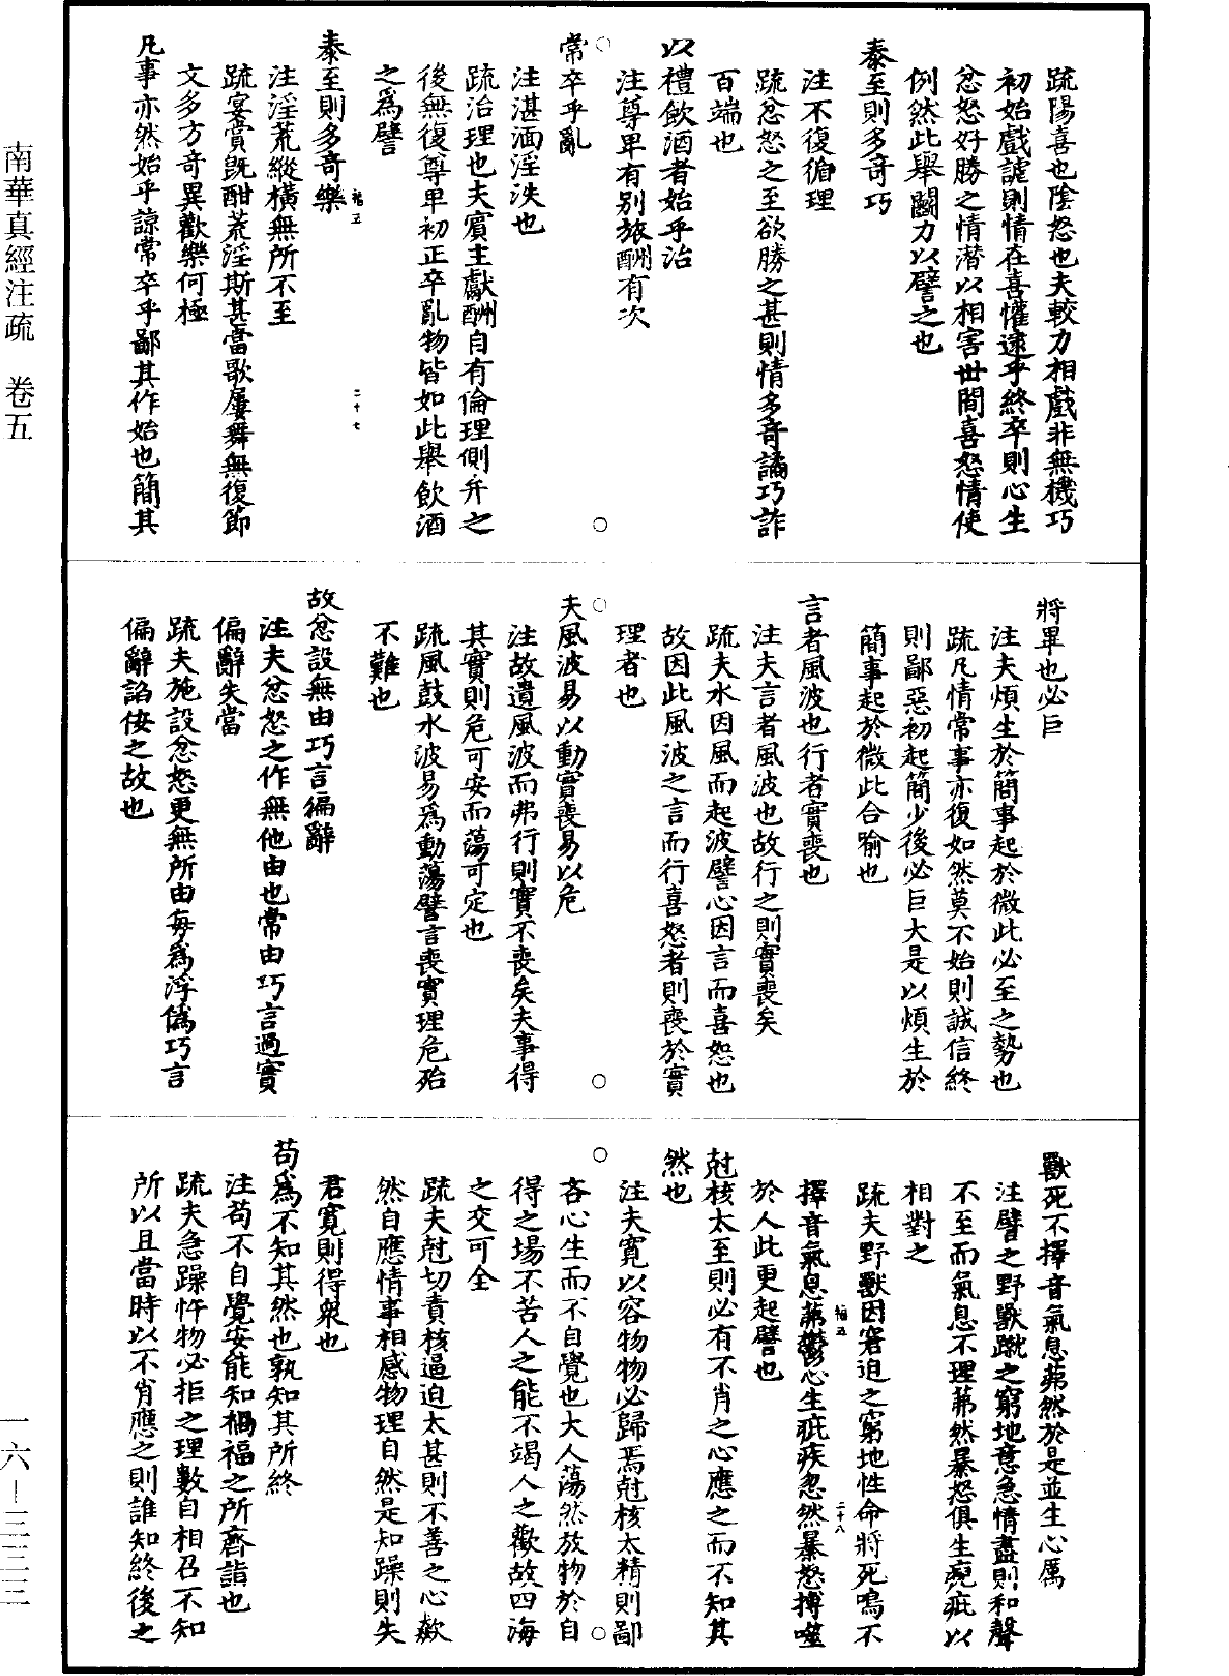 疏陽喜也陰怒也夫較力相戲非無機巧
初始戲謔則情在喜懽逮乎終卒則心生
忿怒好勝之情潜以相害世間喜怒情使
例然此舉鬭力以譬之也
泰至則多奇巧
注不復循理
疏忿怒之至欲勝之甚則情多奇譎巧詐
百端也
以禮飲酒者始乎治
注尊卑有别旅酬有次
常卒乎亂
注湛湎淫泆也
疏治理也夫賓主獻酬自有倫理側弁之
後無復尊卑初正卒亂物皆如此舉飲酒
之爲譬
泰至則多奇樂
注淫荒縱横無所不至
疏宴賞既酣荒淫斯甚當歌屢舞無復節
文多方奇異歡樂何極
凡事亦然始乎諒常卒乎鄙其作始也簡其
將畢也必巨
注夫煩生於簡事起於微此必至之勢也
疏凡情常事亦復如然莫不始則誠信終
則鄙惡初起簡少後必巨大是以煩生於
簡事起於微此合喻也
言者風波也行者實喪也
注夫言者風波也故行之則實喪矣
疏夫水因風而起波譬心因言而喜怒也
故因此風波之言而行喜怒者則喪於實
理者也
夫風波易以動實喪易以危
注故遺風波而弗行則實不喪矣夫事得
其實則危可安而蕩可定也
疏風鼓水波易爲動蕩譬言喪實理危殆
不難也
故忿設無由巧言偏辭
注夫忿怒之作無他由也常由巧言過實
偏辭失當
疏夫施設忿怒更無所由每爲浮僞巧言
偏辭諂佞之故也
獸死不擇音氣息茀然於是並生心厲
注譬之野獸蹴之窮地意急情盡則和聲
不至而氣息不理茀然暴怒俱生疣疵以
相對之
疏夫野獸因窘迫之窮地性命將死鳴不
擇音氣息茀鬱心生疵疾忽然暴怒搏噬
於人此更起譬也
尅核太至則必有不肖之心應之而不知其
然也
注夫寛以容物物必歸焉尅核太精則鄙
吝心生而不自覺也大人蕩然放物於自
得之場不苦人之能不竭人之歡故四海
之交可全
疏夫尅切責核逼迫太甚則不善之心歘
然自應情事相感物理自然是知躁則失
君寛則得衆也
苟爲不知其然也孰知其所終
注苟不自覺安能知禍福之所齊詣也
疏夫急躁忤物必拒之理數自相召不知
所以且當時以不肖應之則誰知終後之
南華真經注疏 卷五
一六－三三三
二十七
二十八